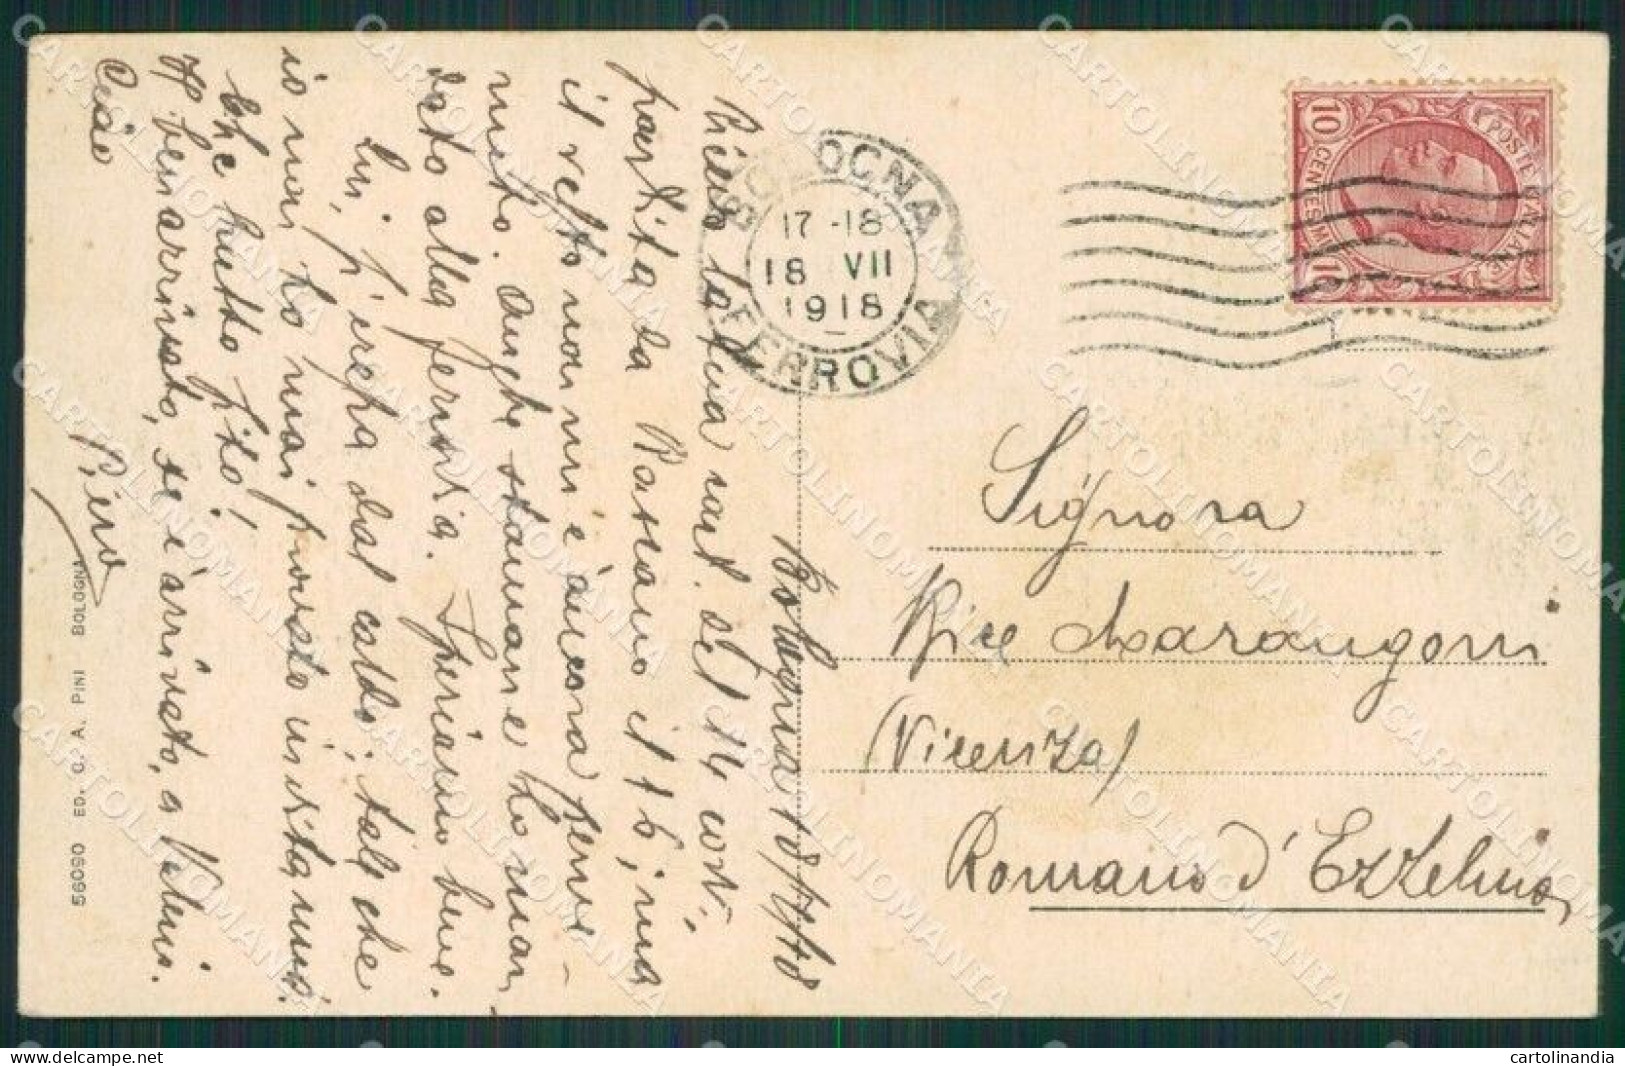 Bologna 18/7/918
Ricevo la tua cart. del 14 corr.,
partita da Bassano il 16; ma
il resto non mi è ancora perve-
nuto. Anche stamane ho man
dato alla ferrovia. Speriamo bene.
Qui, si crepa dal caldo; tale che
io non ho mai provato in vita mia.
Che brutto sito!
Ben arrivato, se è arrivato, a
Ciao
Piero
56090 ED. C. A. PINI BOLOGNA
BOLOGNA
17-18
18 VII
1918
FERROVIA
POSTE ITALIANE
10 CENTESIMI 10
Signora
Bice Marangoni
(Vicenza)
Romano d'Ezzelino
CARTOLINOMANIA
cartolinandia